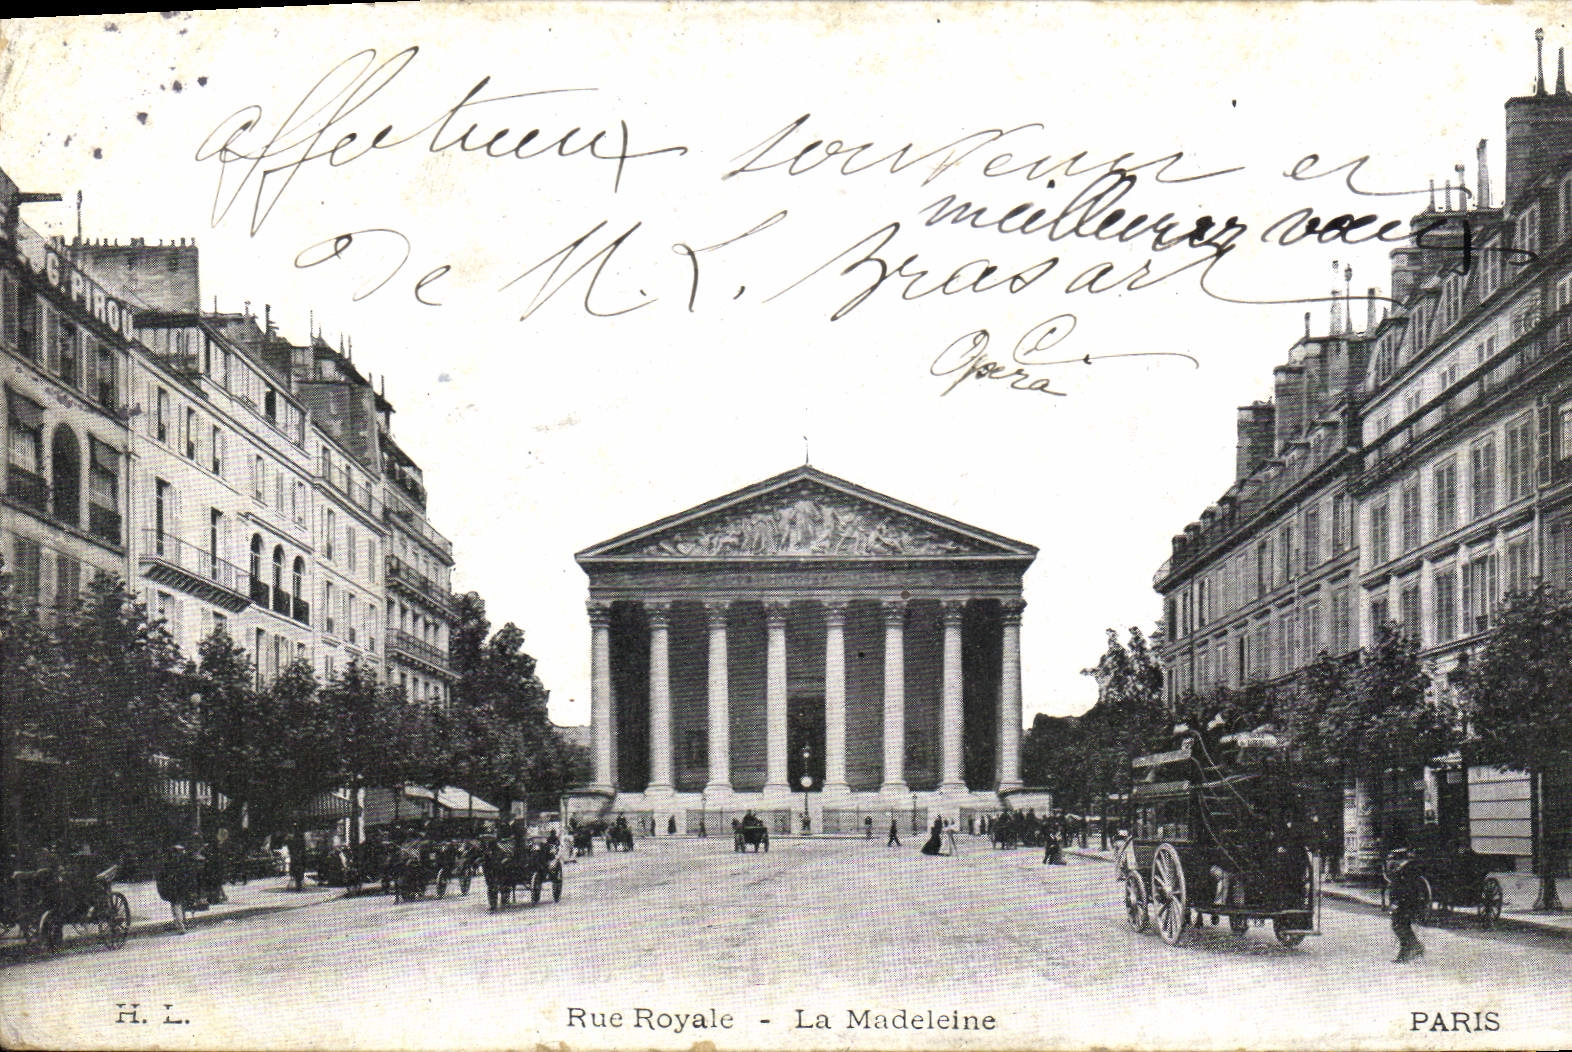 affectueux souvenir et
meilleurs vœux
de M. L. Brasart
Opera C.
G. PIROU
H. L.
Rue Royale - La Madeleine
PARIS